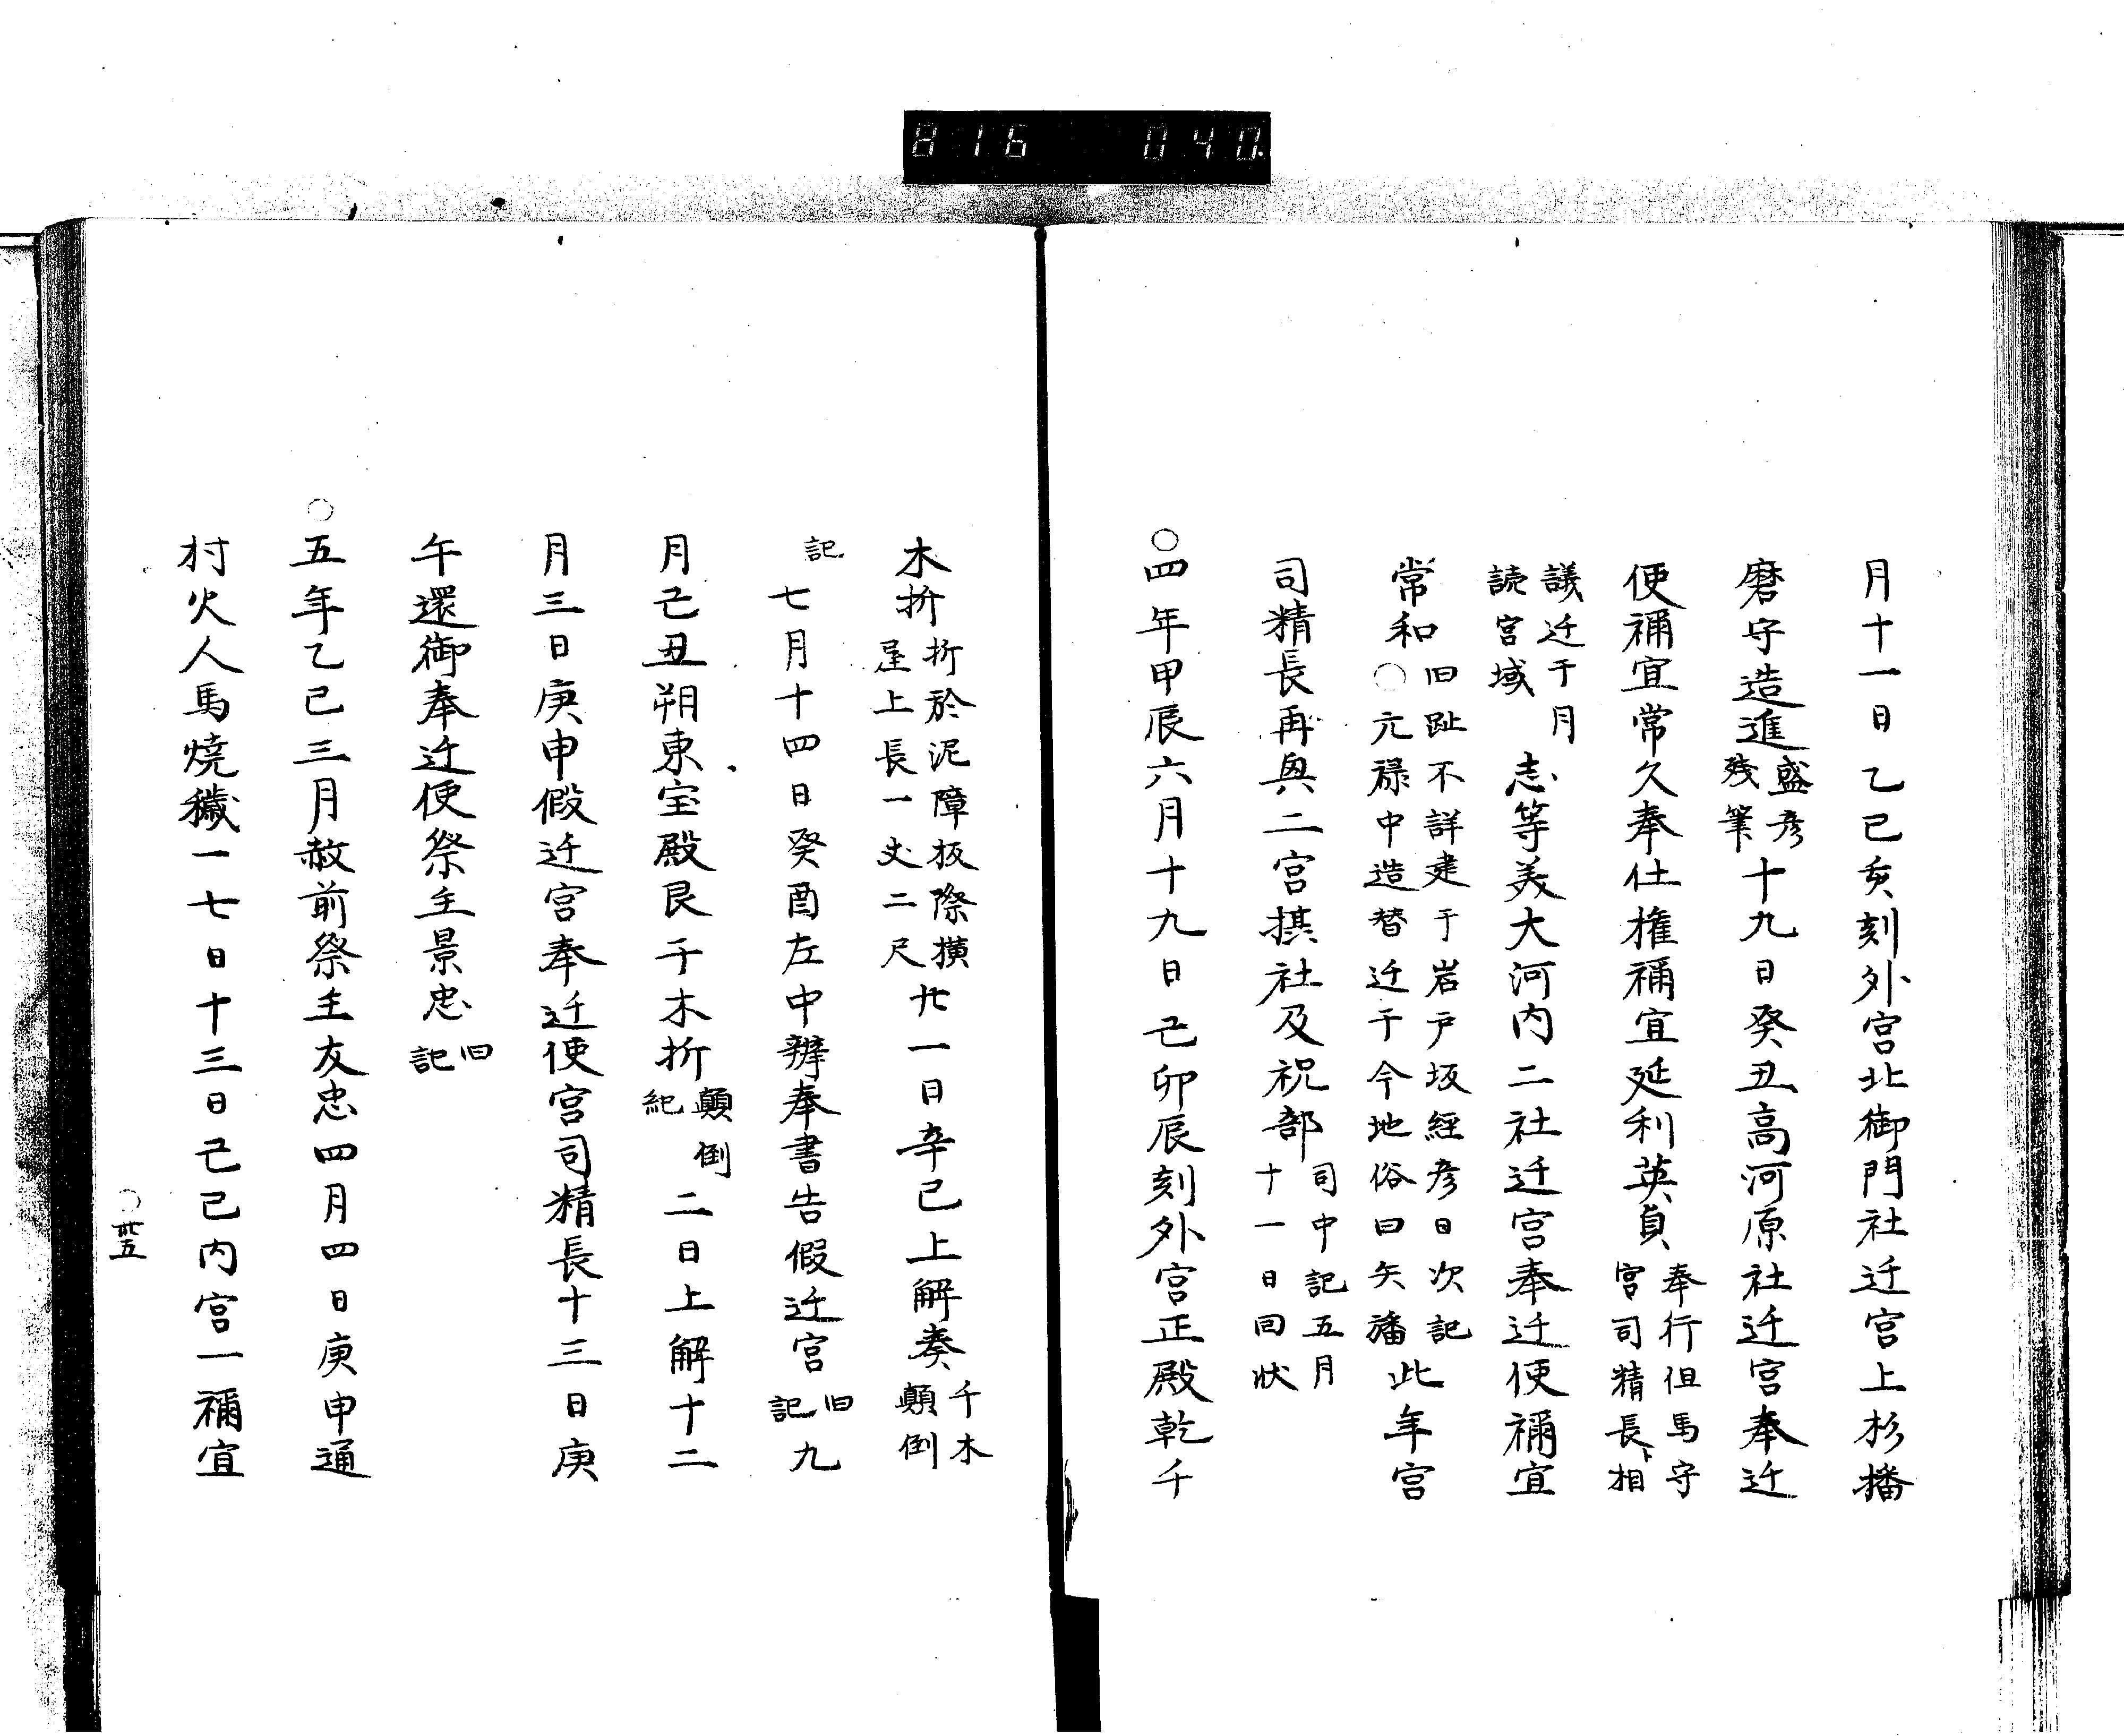 816 040.
月十一日乙巳亥刻外宮北御門社迁宮上杉播
磨守造進盛彦残筆十九日癸丑高河原社迁宮奉迁
使禰宜常久奉仕権禰宜延利英貞奉行但馬守宮司精長、相
議迁于月読宮域志等美大河内二社迁宮奉迁使禰宜
常和旧趾不詳建于岩戸坂経彦日次記〇元禄中造替迁于今地俗曰矢旛此年宮
司精長再興二宮摂社及祝部司中記五月十一日回状
〇四年甲辰六月十九日己卯辰刻外宮正殿乾千
木折折於泥障板際横屋上長一丈二尺廿一日辛巳上解奏千木顛倒
記七月十四日癸酉左中辨奉書告假迁宮旧記九
月己丑朔東宝殿艮千木折顛倒紀二日上解十二
月三日庚申假迁宮奉迁使宮司精長十三日庚
午還御奉迁使祭主景忠旧記
〇五年乙巳三月赦前祭主友忠四月四日庚申通
村火人馬焼穢一七日十三日己巳内宮一禰宜
〇卅五